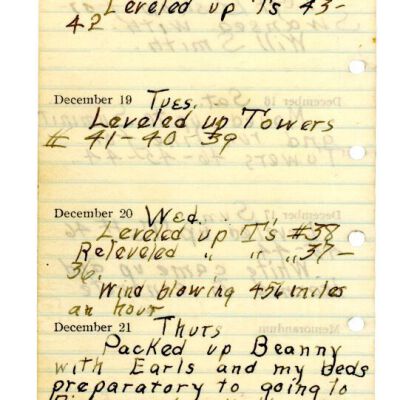 Leveled up T's 43-
42
December 19 Tues.
Leveled up Towers
# 41-40 39
December 20 Wed.
Leveled up T's #38
Releveled " " " 37-
36.
Wind blowing 45 miles
an hour
December 21 Thurs
Packed up Beanny
with Earls and my beds
preparatory to going to